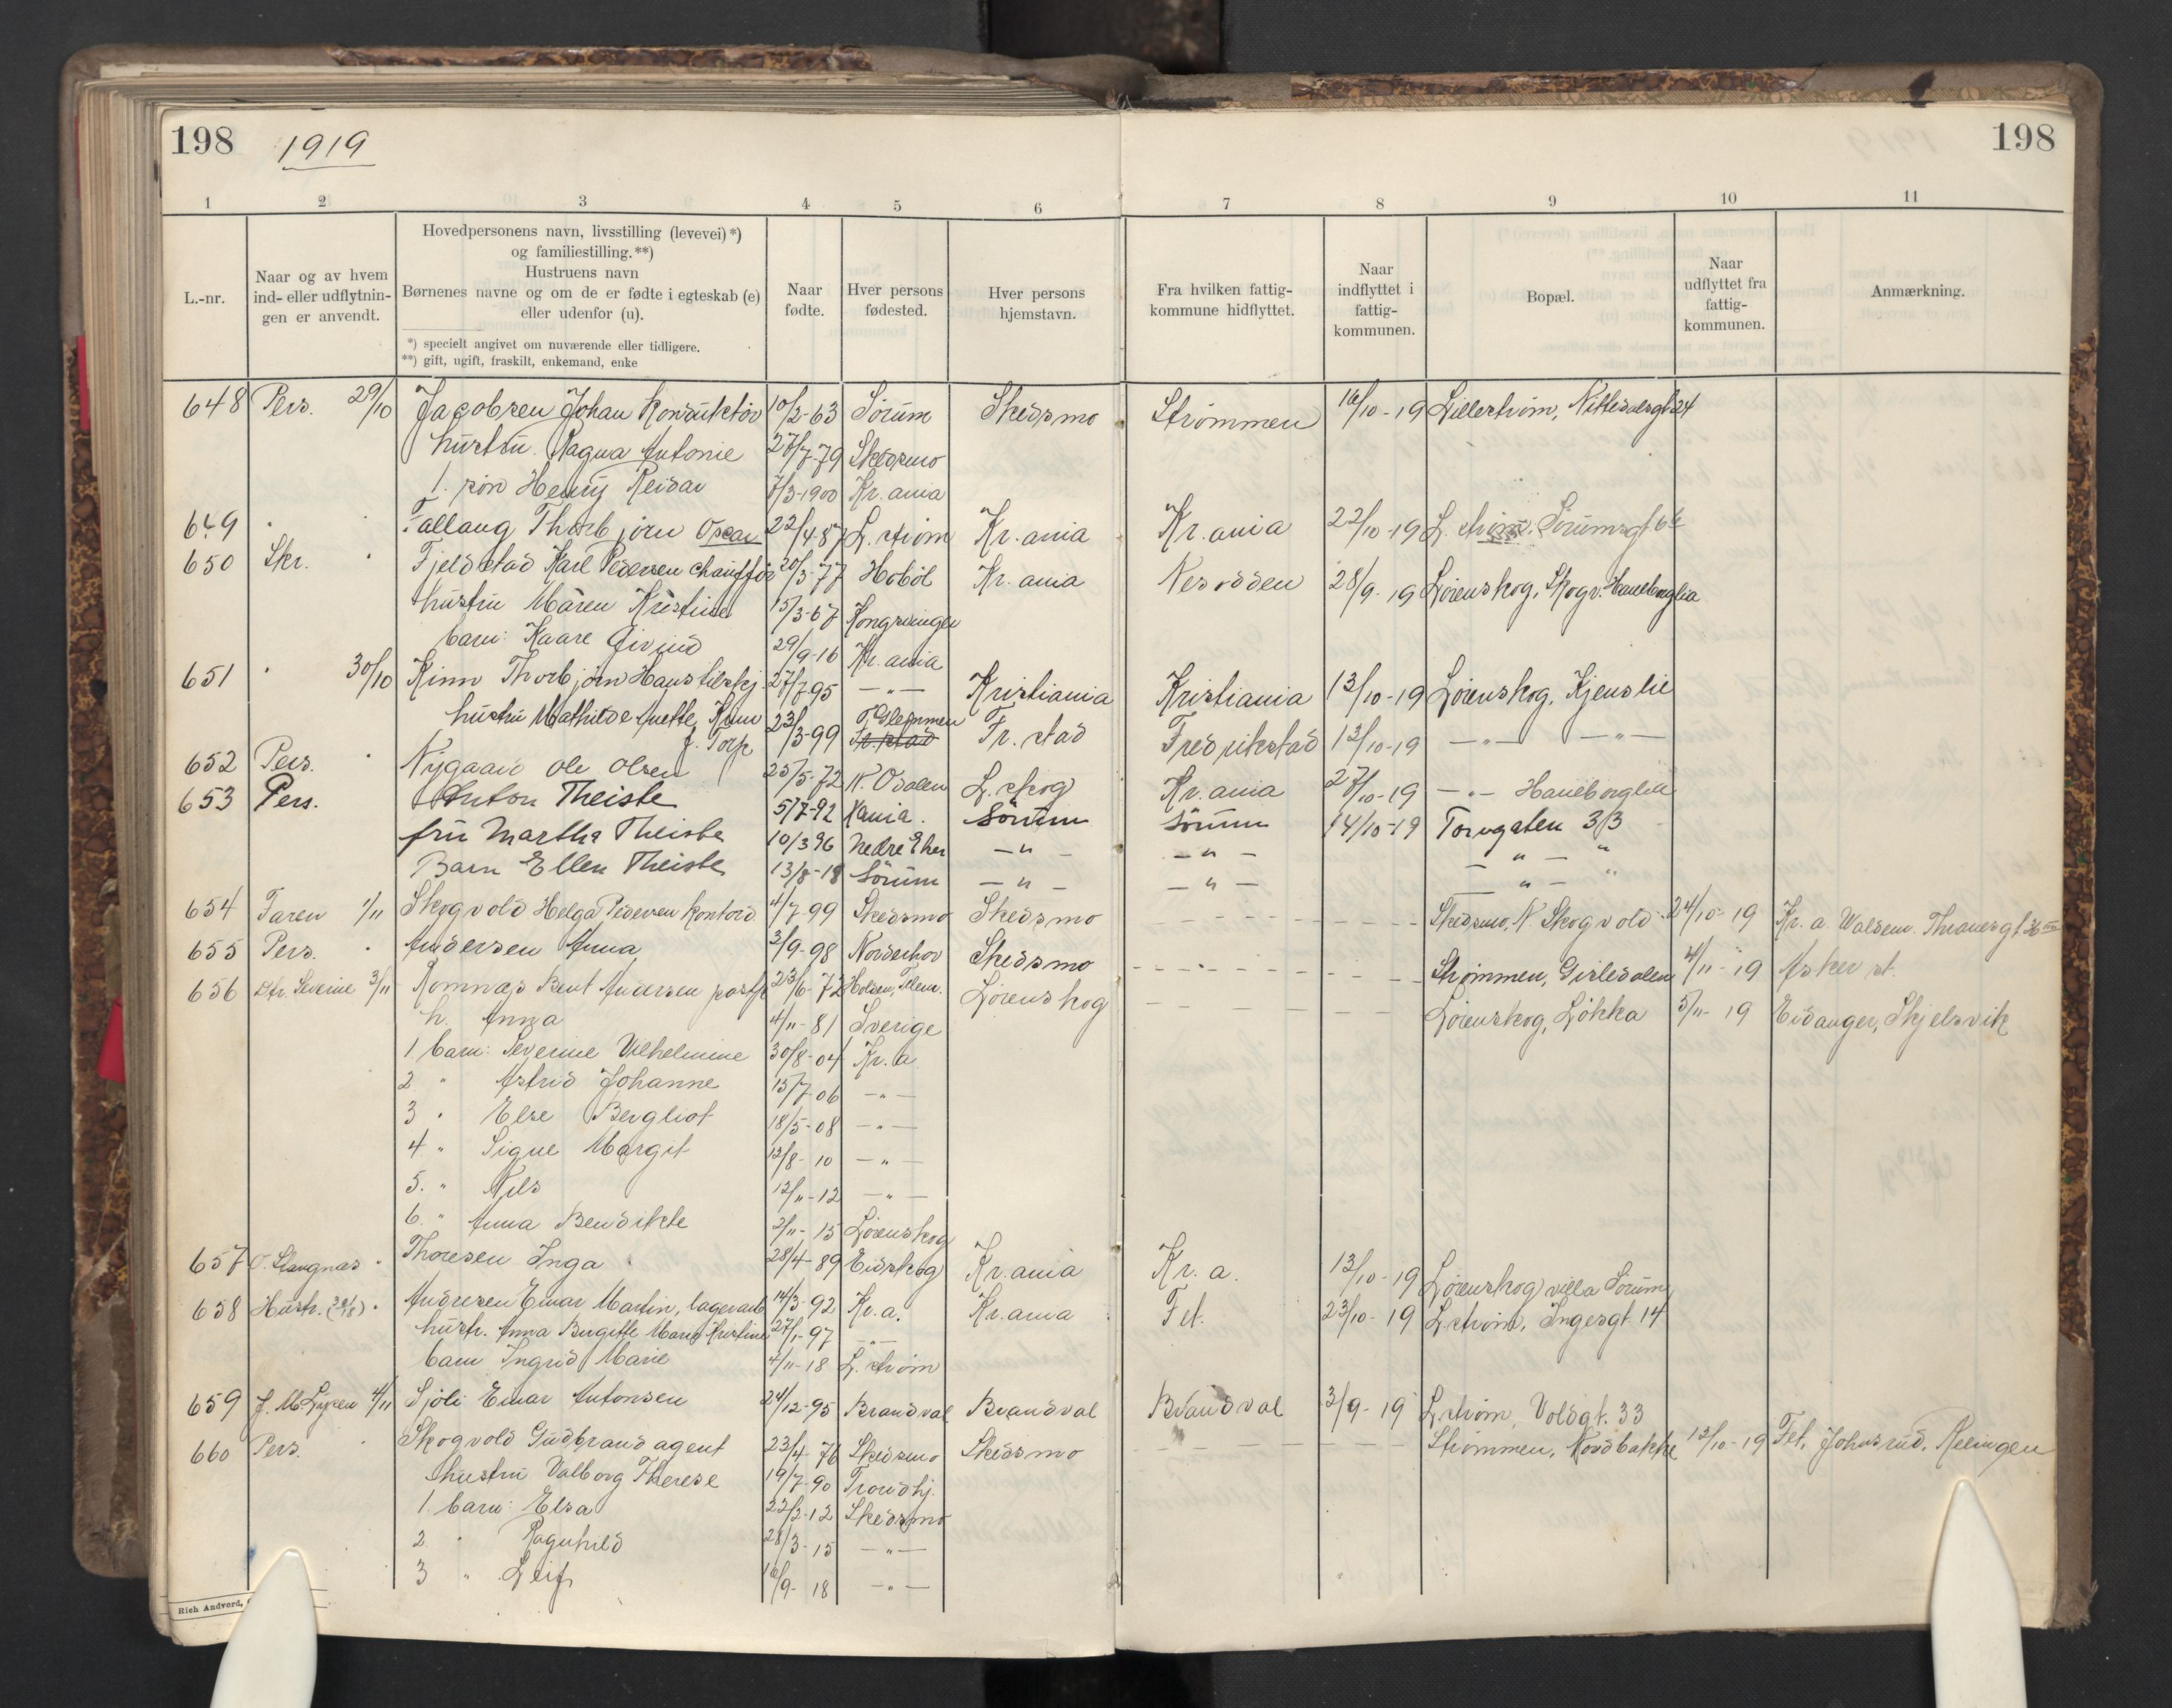 198 1919 198
1 2 3 4 5 6 7 8 9 10 11
L.-nr.
Naar og av hvem ind- eller udflytnin- gen er anvendt.
Hovedpersonens navn, livsstilling (levevei) *)
og familiestilling. **)
Hustruens navn
Børnenes navne og om de er fødte i egteskab (e)
eller udenfor (u).
*) specielt angivet om nuværende eller tidligere.
**) gift, ugift, fraskilt, enkemand, enke
Naar fødte.
Hver persons fødested.
Hver persons hjemstavn.
Fra hvilken fattig- kommune hidflyttet.
Naar indflyttet i fattig- kommunen.
Bopæl.
Naar udflyttet fra fattig- kommunen.
Anmærkning.
648 Pers. 29/10 Jacobsen Johan Konduktør 10/2-63 Sørum Skedsmo Strømmen 16/10-19 Lillestrøm, Nittedalsgt 24
hustru Ragna Antonie 27/7-79 Skedsmo
1. søn Henry Reidar 7/3-1900 Kr.ania
649 " Fallang Thorbjørn Oscar 22/4-87 L.strøm Kr.ania Kr.ania 22/10-19 L.strøm, Sørumsgt
650 Skr. " Fjeldstad Karl Pedersen chauffør 20/3-77 Hobøl Kr.ania Nesodden 28/9-19 Lørenskog, Skogv. Haneborglia
hustru Maren Kristine 15/3-67 Kongsvinger
barn: Kaare Eivind 29/9-16 Kr.ania
651 " 30/10 Kinn Thorbjørn Hans 27/7-95 —"— Kristiania Kristiania 13/10-19 Lørenskog, Kjenslie
hustru Mathilde Anette Kinn 23/3-99 Glemmen Fr.stad Fr.stad Fredrikstad 13/10-19 —"— —"—
f. Torp
652 Pers. " Nygaard Ole Olsen 25/5-72 N. Odalen L.skog Kr.ania 27/10-19 —"— Haneborglia
653 Pers. Anton Theiste 5/7-92 Kania. Sörum Sörum 14/10-19 Torvgaten 3/3
fru Martha Theiste 10/3 96 Nedre Eker —"— —"— —"— "
Barn Ellen Theiste 13/8-18 Sörum —"— —"— —"— "
654 Faren 1/11 Skogvold Helga Pedersen Kontord 4/7-99 Skedsmo Skedsmo Skedsmo, N. Skogvold 24/10-19 Kr. a. Waldem. Thranesgt.
655 Pers. " Andersen Anna 3/9-98 Norderhov Skedsmo Strømmen, Girledalen 4/11-19 Asker st.
656 Dtr. Severine 3/11 Romnæs Bent Andersen 23/6-72 Holsen, Telem. Lørenskog Lørenskog, Løkka 5/11-19 Eidanger, Skjelsvik
h. Anna 4/11-81 Sverige
1 barn: Severine Vilhelmine 30/8-04 Kr.a
2 " Astrid Johanne 15/7-06 —"—
3 " Else Bergliot 18/5-08 —"—
4 " Signe Margit 12/8-10 —"—
5. " Nils 12/11-12 —"—
6. " Anna Bendikte 2/11-15 Lørenskog
657 O. Stangnæs " Thoresen Inga 28/4-89 Eidskog Kr.ania Kr. a. 13/10-19 Lørenskog villa Sørum
658 Hustr. " Andresen Einar Martin, lagerarb 14/3-92 Kr.a. Kr.ania Fet. 23/10-19 L.strøm, Ingesgt. 14
hustr. Anna Birgitte Marie Kristine 27/1-97 —"—
barn Ingrid Marie 4/11-18 L.strøm
659 J. M. 4/11 Sjøli Einar Antonsen 24/12-95 Brandval Brandval Brandval 3/9-19 L.strøm, Voldgt. 33
660 Pers. " Skogvold Gudbrand agent 23/4-76 Skedsmo Skedsmo Strømmen, Nordbakke 12/10-19 Fet, Johnsrud, Relingen
hustru Valborg Therese 19/7-90 Trondhj.
1. barn: Elsa 22/2-12 Skedsmo
2 " Ragnhild 28/3-15 —"—
3 " Leif 16/9-18 —"—
Rich Andvord,